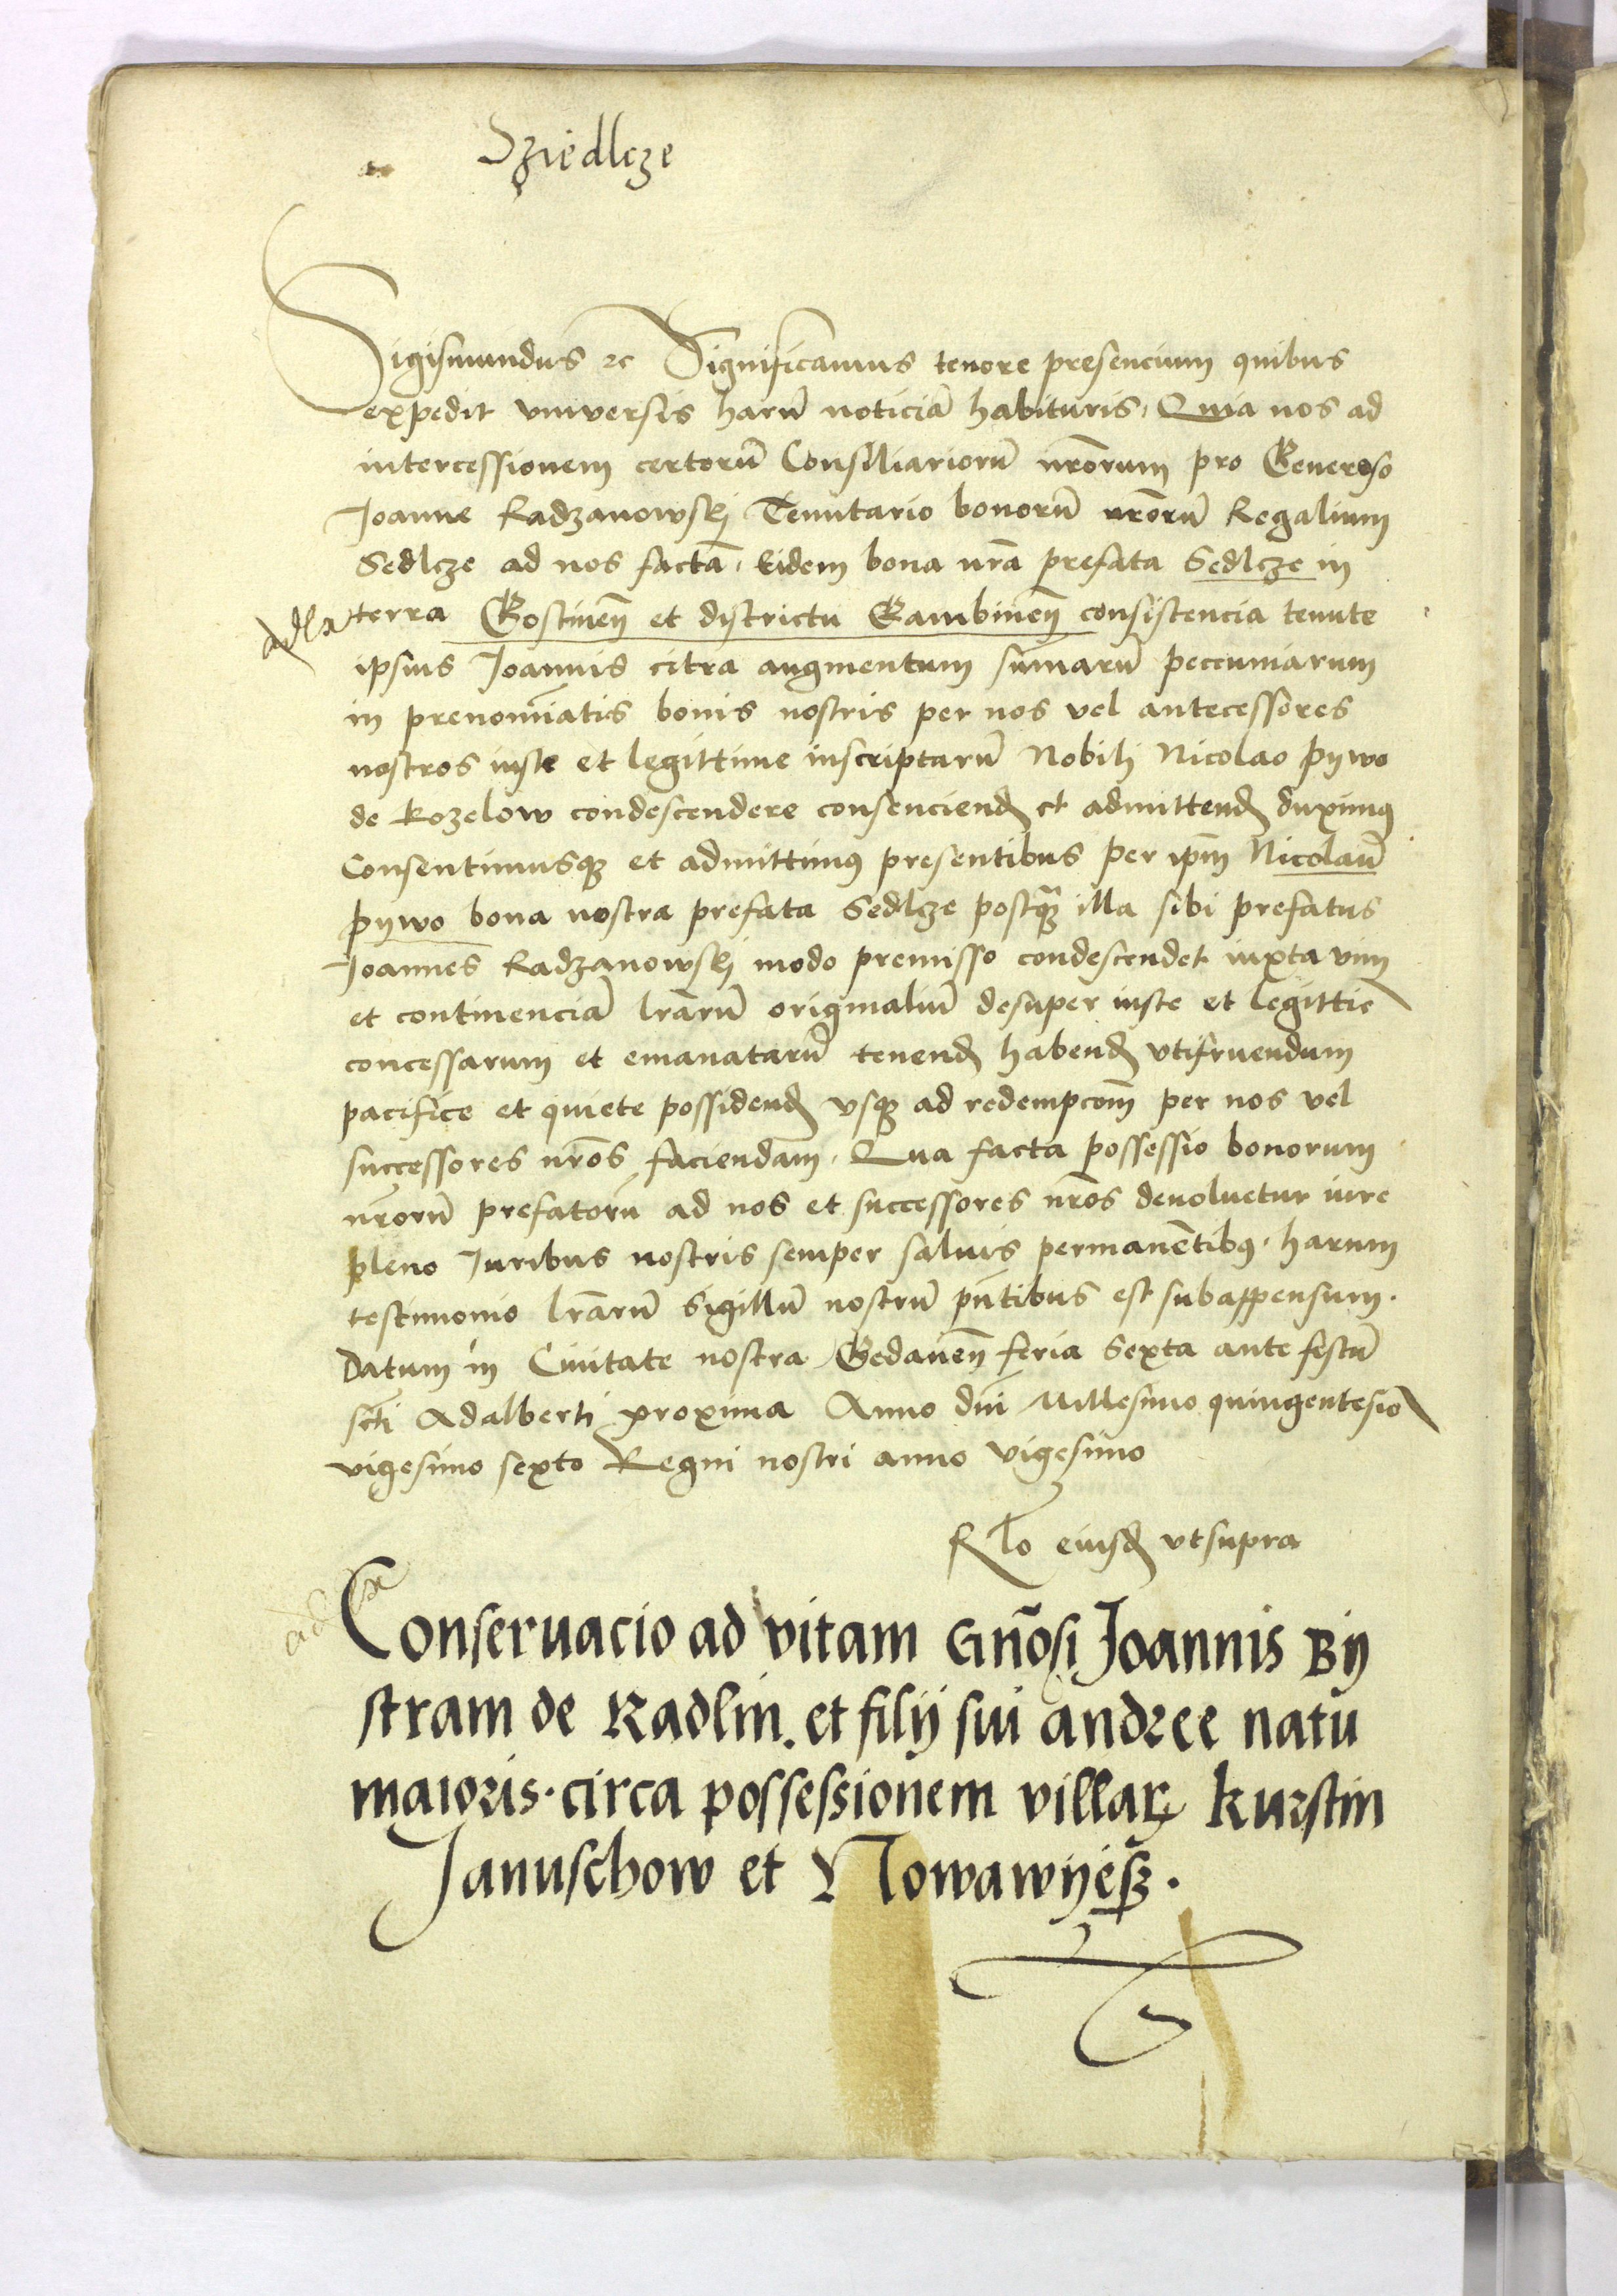 Sziedlcze
Sigismundus ꝛc Significamus tenore presencium quibus
expedit vniversis harū noticiā habituris, Quia nos ad
intercessionem certorū Consiliariorū nr̄orum pro Generoso
Joanne Radzanowskj Tenutario bonorū nr̄orū Regalium
Sedlcze ad nos factā, Eidem bona nr̄a prefata Sedlcze in
terra Gostinen̄ et districtu Gambinen̄ consistencia tenute
ipsius Joannis citra augmentum sūmarū peccuniarum
in prenomīatis bonis nostris per nos vel antecessores
nostros iuste et legittime inscriptarū Nobilj Nicolao pywo
de Kozelow condescendere consenciend et admittend duximꝰ
Consentimusqꝫ et admittimꝰ presentibus per ip̄m Nicolaū
pywo bona nostra prefata Sedlcze postqꝫ illa sibi prefatus
Joannes Radzanowskj modo premisso condescendet iuxta vim
et continenciā lr̄arū originaliū desuper iuste et legittie
concessarum et emanatarū tenend habend vtifruendum
pacifice et quiete possidend vsqꝫ ad redempcoēm per nos vel
successores nr̄os faciendam, Qua facta possessio bonorum
nr̄orū prefatorū ad nos et successores nr̄os devoluetur iure
pleno Juribus nostris semper saluis permanētibꝰ, harum
testimonio lr̄arū Sigillū nostrū pn̄tibus est subappensum.
Datum in Ciuitate nostra Gedanen̄ feria Sexta ante festū
scti Adalberti proxima Anno dn̄i Millesimo quingentesio
vigesimo sexto Regni nostri anno vigesimo
Rlo eiusd vtsupra
Conseruacio ad vitam Gn̄osi Joannis By
stram de Radlin. et filij sui andree natu
maioris. circa possessionem villaꝝ kurstin
Januschow et Nowawyesz.